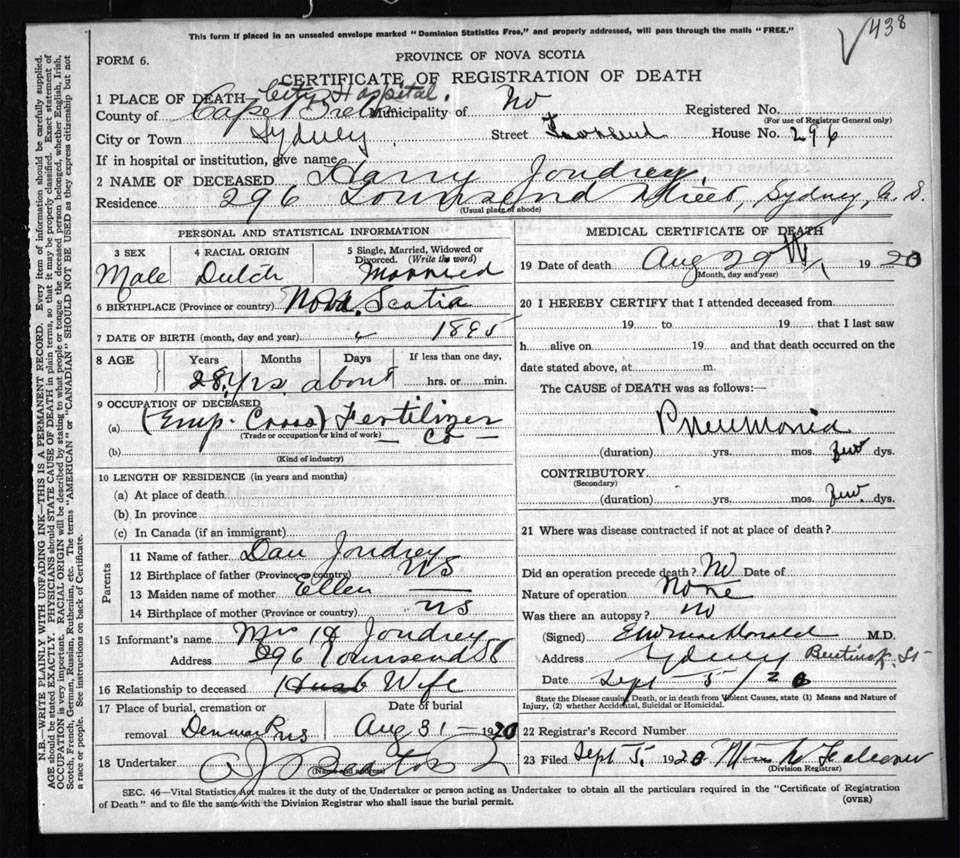 438
This form if placed in an unsealed envelope marked "Dominion Statistics Free," and properly addressed, will pass through the mails "FREE."
FORM 6.
PROVINCE OF NOVA SCOTIA
CERTIFICATE OF REGISTRATION OF DEATH
1 PLACE OF DEATH City Hospital.
County of Cape Breton Municipality of No Registered No.
(For use of Registrar General only)
City or Town Sydney Street Townsend House No. 296
If in hospital or institution, give name
2 NAME OF DECEASED Harry Joudrey
Residence 296 Townsend Street, Sydney, N. S.
(Usual place of abode)
PERSONAL AND STATISTICAL INFORMATION
3 SEX 4 RACIAL ORIGIN 5 Single, Married, Widowed or Divorced. (Write the word)
Male Dutch Married
6 BIRTHPLACE (Province or country) Nova Scotia
7 DATE OF BIRTH (month, day and year) 1895
8 AGE Years Months Days If less than one day,
28 yrs about hrs. or min.
9 OCCUPATION OF DECEASED
(a) (Emp. Cross) Fertilizer
(Trade or occupation or kind of work) — Co —
(b)
(Kind of industry)
10 LENGTH OF RESIDENCE (in years and months)
(a) At place of death
(b) In province
(c) In Canada (if an immigrant)
Parents
11 Name of father Dan Joudrey
12 Birthplace of father (Province or country) NS
13 Maiden name of mother Ellen —
14 Birthplace of mother (Province or country) NS
15 Informant's name Mrs H Joudrey
Address 296 Townsend St
16 Relationship to deceased Husb Wife
17 Place of burial, cremation or removal Date of burial
NS Aug 31 — 1920
18 Undertaker Beaton
(Name and address)
MEDICAL CERTIFICATE OF DEATH
19 Date of death Aug 29th, 1920
(Month, day and year)
20 I HEREBY CERTIFY that I attended deceased from
19 to 19 that I last saw
h alive on 19 and that death occurred on the
date stated above, at m.
The CAUSE of DEATH was as follows:—
Pneumonia
(duration) yrs. mos. few dys.
CONTRIBUTORY
(Secondary)
(duration) yrs. mos. few dys.
21 Where was disease contracted if not at place of death?
Did an operation precede death? No Date of
Nature of operation None
Was there an autopsy? no
(Signed) MacDonald M.D.
Address Sydney Bentinck St
Date Sept 5 / 20
State the Disease causing Death, or in death from Violent Causes, state (1) Means and Nature of
Injury, (2) whether Accidental, Suicidal or Homicidal.
22 Registrar's Record Number
23 Filed Sept 5, 1920
(Division Registrar)
SEC. 46—Vital Statistics Act makes it the duty of the Undertaker or person acting as Undertaker to obtain all the particulars required in the "Certificate of Registration
of Death" and to file the same with the Division Registrar who shall issue the burial permit. (OVER)
N.B.—WRITE PLAINLY WITH UNFADING INK—THIS IS A PERMANENT RECORD. Every item of information should be carefully supplied.
AGE should be stated EXACTLY. PHYSICIANS should STATE CAUSE OF DEATH in plain terms, so that it may be properly classified. Exact statement of
OCCUPATION is very important. RACIAL ORIGIN will be described by stating to what people or tongue the deceased person belonged, whether English, Irish,
Scotch, French, German, Russian, Ruthenian, etc. The terms "AMERICAN" or "CANADIAN" SHOULD NOT BE USED as they express citizenship but not
a race or people. See instructions on back of Certificate.